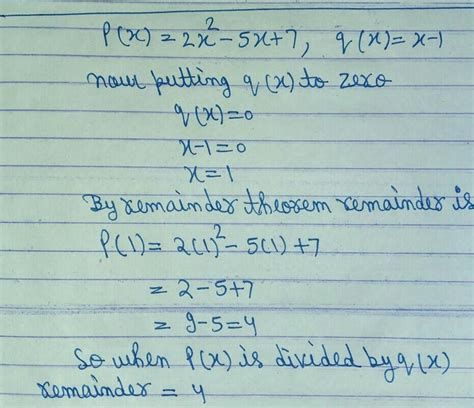 P(x) = 2x² - 5x + 7, q(x) = x-1
now putting q(x) to zero
q(x) = 0
x-1 = 0
x = 1
By remainder theorem remainder is
P(1) = 2(1)² - 5(1) + 7
= 2 - 5 + 7
= 9 - 5 = 4
So when P(x) is divided by q(x)
remainder = 4